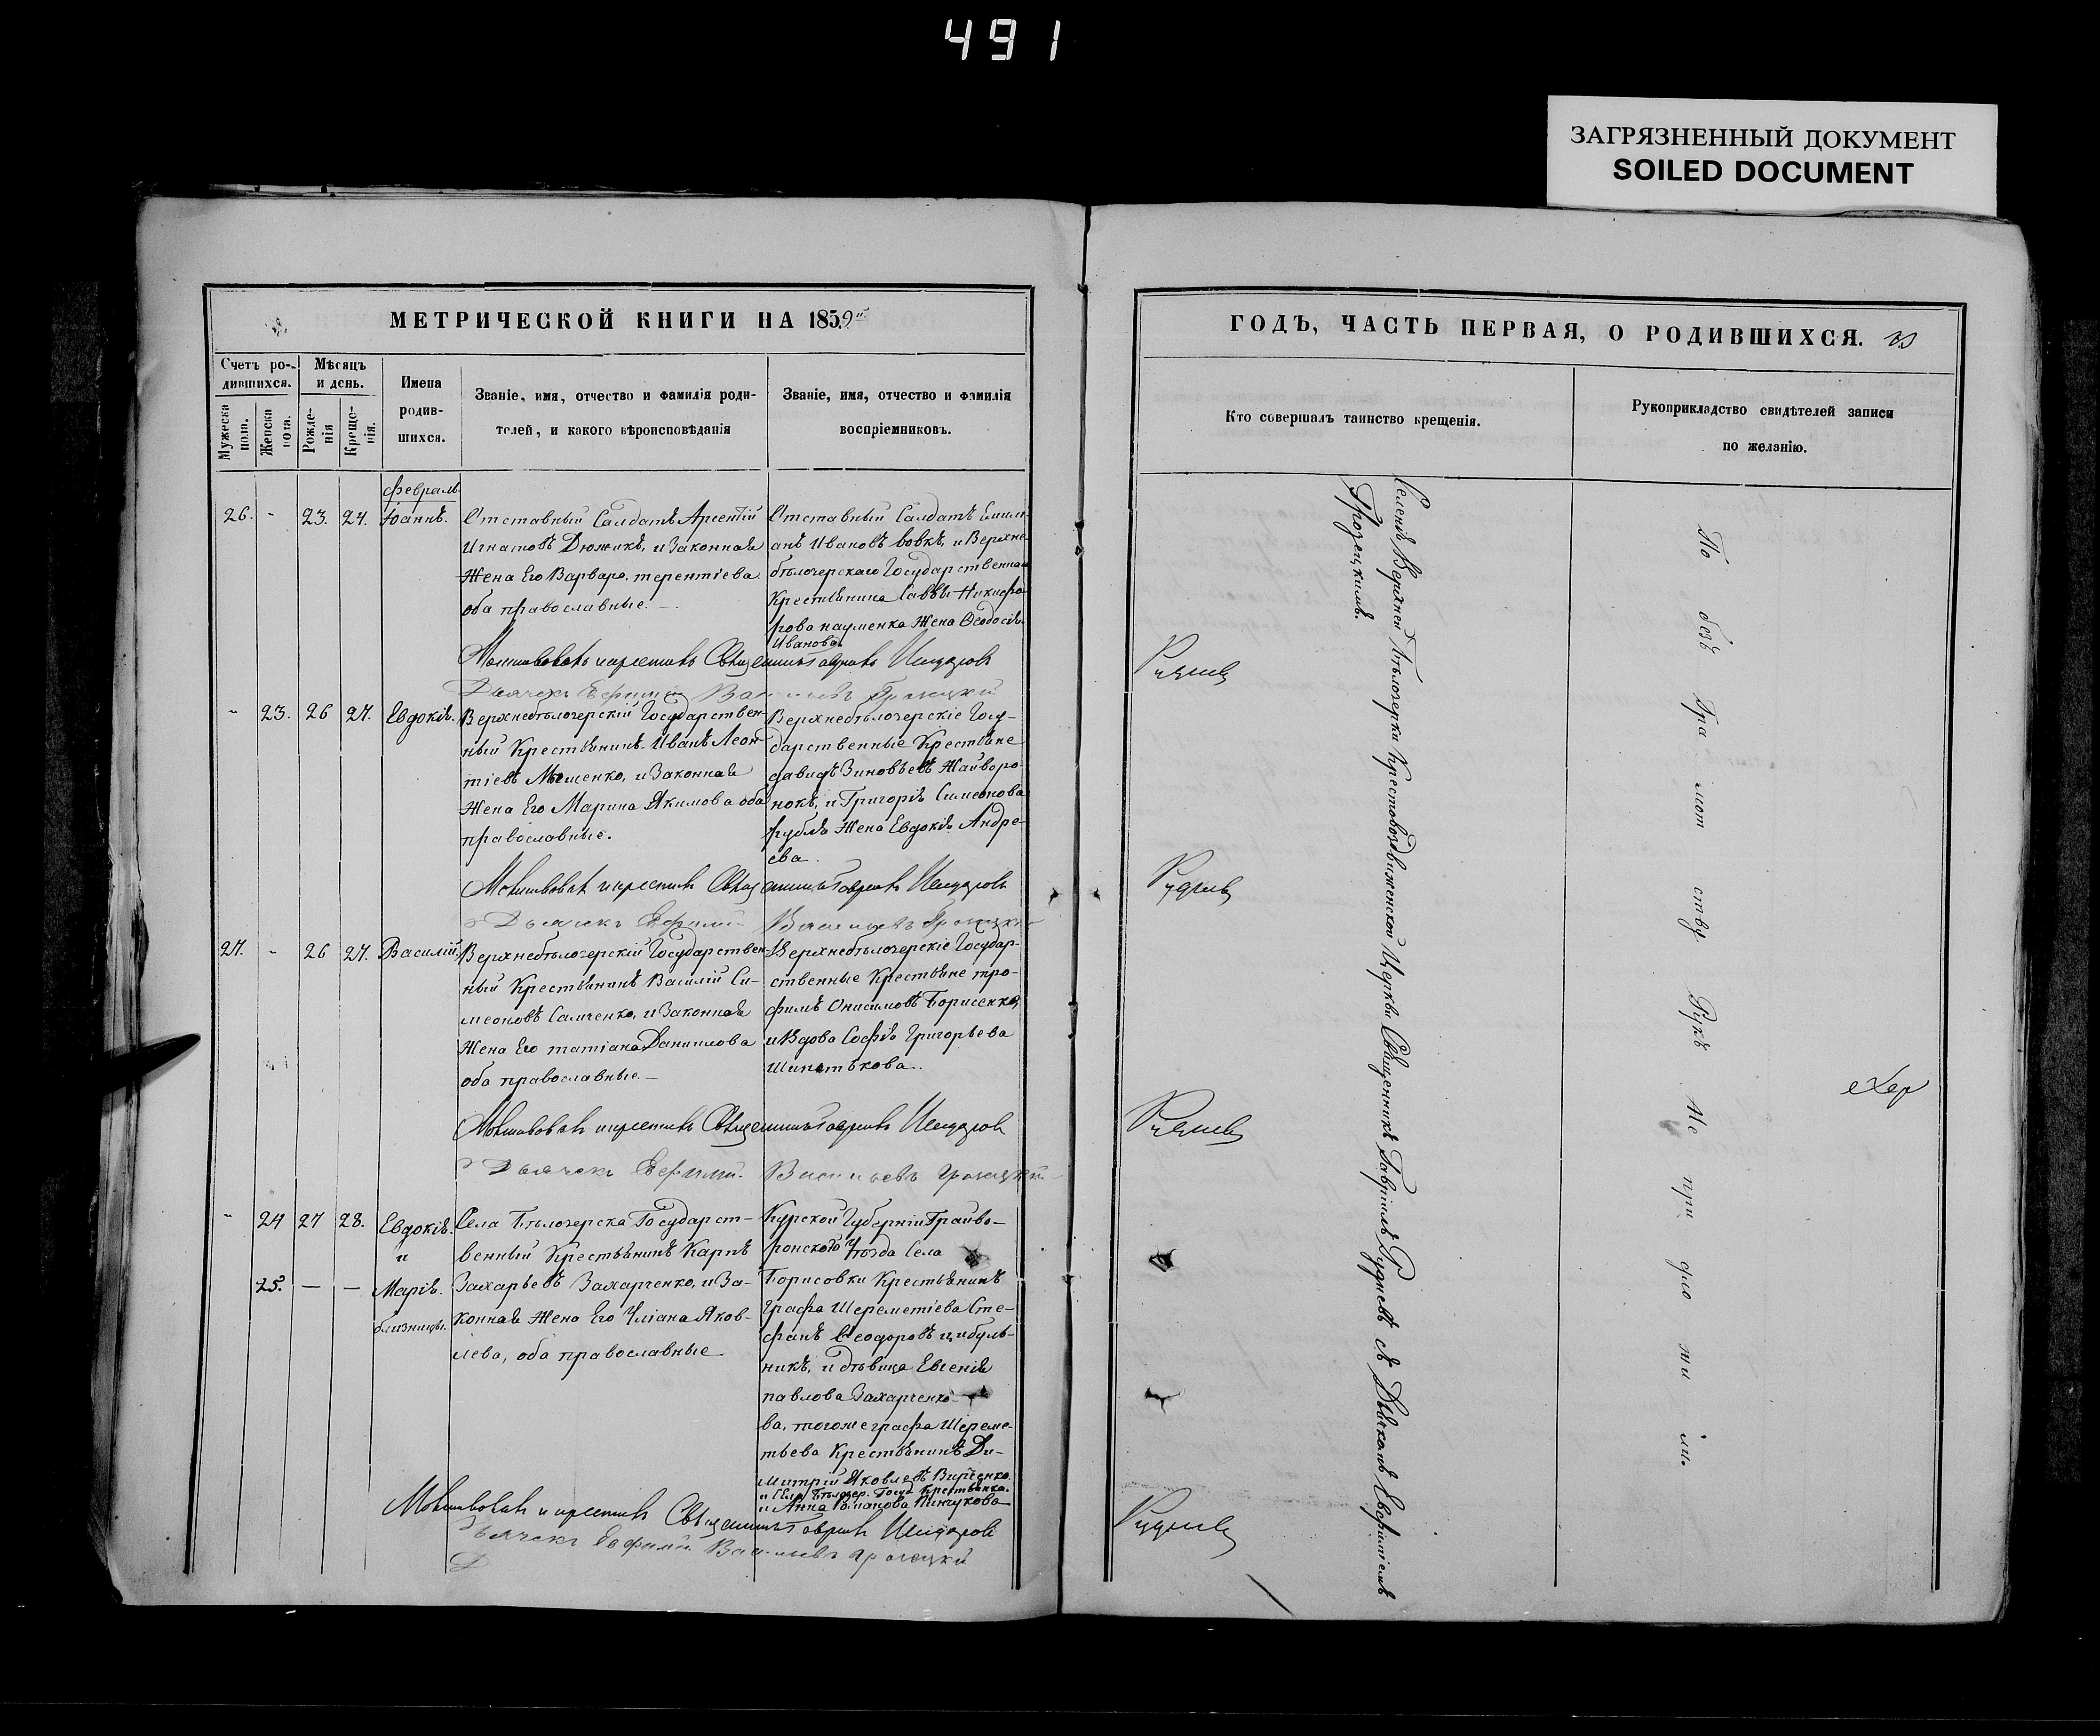 491
ЗАГРЯЗНЕННЫЙ ДОКУМЕНТ
SOILED DOCUMENT
МЕТРИЧЕСКОЙ КНИГИ НА 1859
Счетъ ро-
дившихся.
Мужеска
пола.
Женска
пола.
Мѣсяцъ
и день.
Рожде-
нія
Креще-
нія.
Имена
родив-
шихся.
Званіе, имя, отчество и фамилія роди-
телей, и какого вѣроисповѣданія
Званіе, имя, отчество и фамилія
воспріемниковъ.
Февраль
26. - 23. 24. Іоаннъ.
Отставный Салдатъ Арсентій
Игнатовъ Дюжикъ, и Законная
Жена Его Варвара терентіева
оба православные.
Отставный Салдатъ Емили-
анъ Ивановъ Вовкъ, и Верхне-
бѣлозерскаго Государственнаго
Крестьянина Саввы Никифо-
рова науменка Жена Ѳеодосія
Иванова
Дьячекъ Ефимій
- 23. 26 27. Евдокія.
Верхнебѣлозерскій Государствен-
ный Крестьянинъ Иванъ Леон-
тіевъ Мошенко, и Законная
Жена Его Марина Якимова оба
православные.
Верхнебѣлозерскіе Госу-
дарственные Крестьяне
давидъ Зиновьевъ Жайворо-
нокъ, и Григорія Симеонова
Рубля Жена Евдокія Андре-
ева.
Дьячекъ Ефимій
27. - 26 27. Василій.
Верхнебѣлозерскій Государствен-
ный Крестьянинъ Василій Си-
меоновъ Самченко, и Законная
Жена Его татіана Даниилова
оба православные.
Верхнебѣлозерскіе Государ-
ственные Крестьяне тро-
фимъ Онисимовъ Борисенко,
и Вдова Софія Григорьева
Дьячекъ Ефимій Васильевъ
- 24 27 28. Евдокія.
и
25. — — Марія.
близнецы.
Села Бѣлозерска Государст-
венный Крестьянинъ Карпъ
Захарьевъ Захарченко, и За-
конная Жена Его Уліана Яков-
лева, оба православные
Курской Губерніи Грайво-
ронскаго Уѣзда Села
Борисовки Крестьянинъ
Графа Шереметіева Сте-
фанъ Ѳеодоровъ цибуль-
никъ, и дѣвица Евгенія
павлова Захарченко-
ва, тогоже графа Шереме-
тьева Крестьянинъ Ди-
митрій Яковлевъ
и Села Бѣлозер. Госуд. Крестьянка
и Анна Романова Пинчукова
Дьячекъ Ефимій Васильевъ
ГОДЪ, ЧАСТЬ ПЕРВАЯ, О РОДИВШИХСЯ.
Кто совершалъ таинство крещенія.
Рукоприкладство свидѣтелей записи
по желанію.
Селенія Верхней Бѣлозерки Крестовоздвиженской Церкви Священникъ Гавріилъ Рудневъ съ Дьячкомъ Евфиміемъ
Грозецкимъ.
Рудневъ
Рудневъ
Рудневъ
Рудневъ
По безъ Гра мот ству Рукъ Не при ло жи ли.